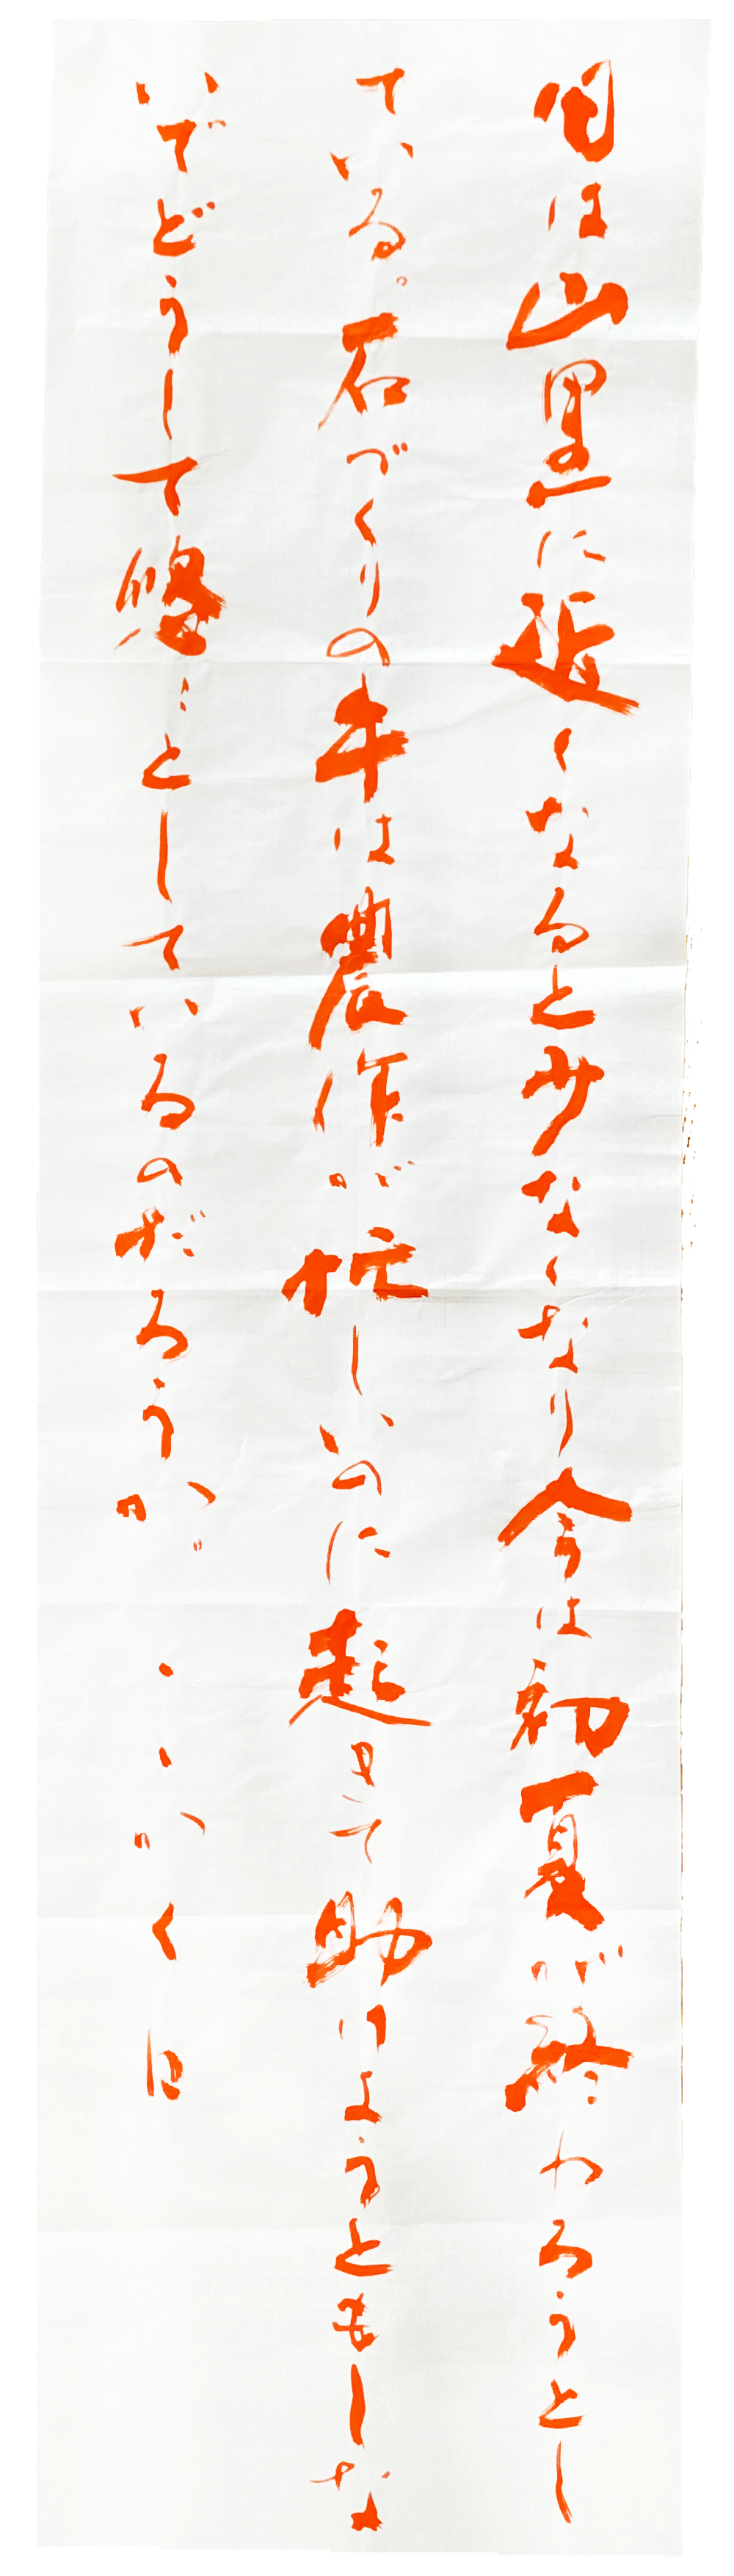 田は山里に近くなると少なくなり今は初夏が終わろうとし
ている。石づくりの牛は農作が忙しいのに起きて助けようともしな
いでどうして悠々としているのだろうか。